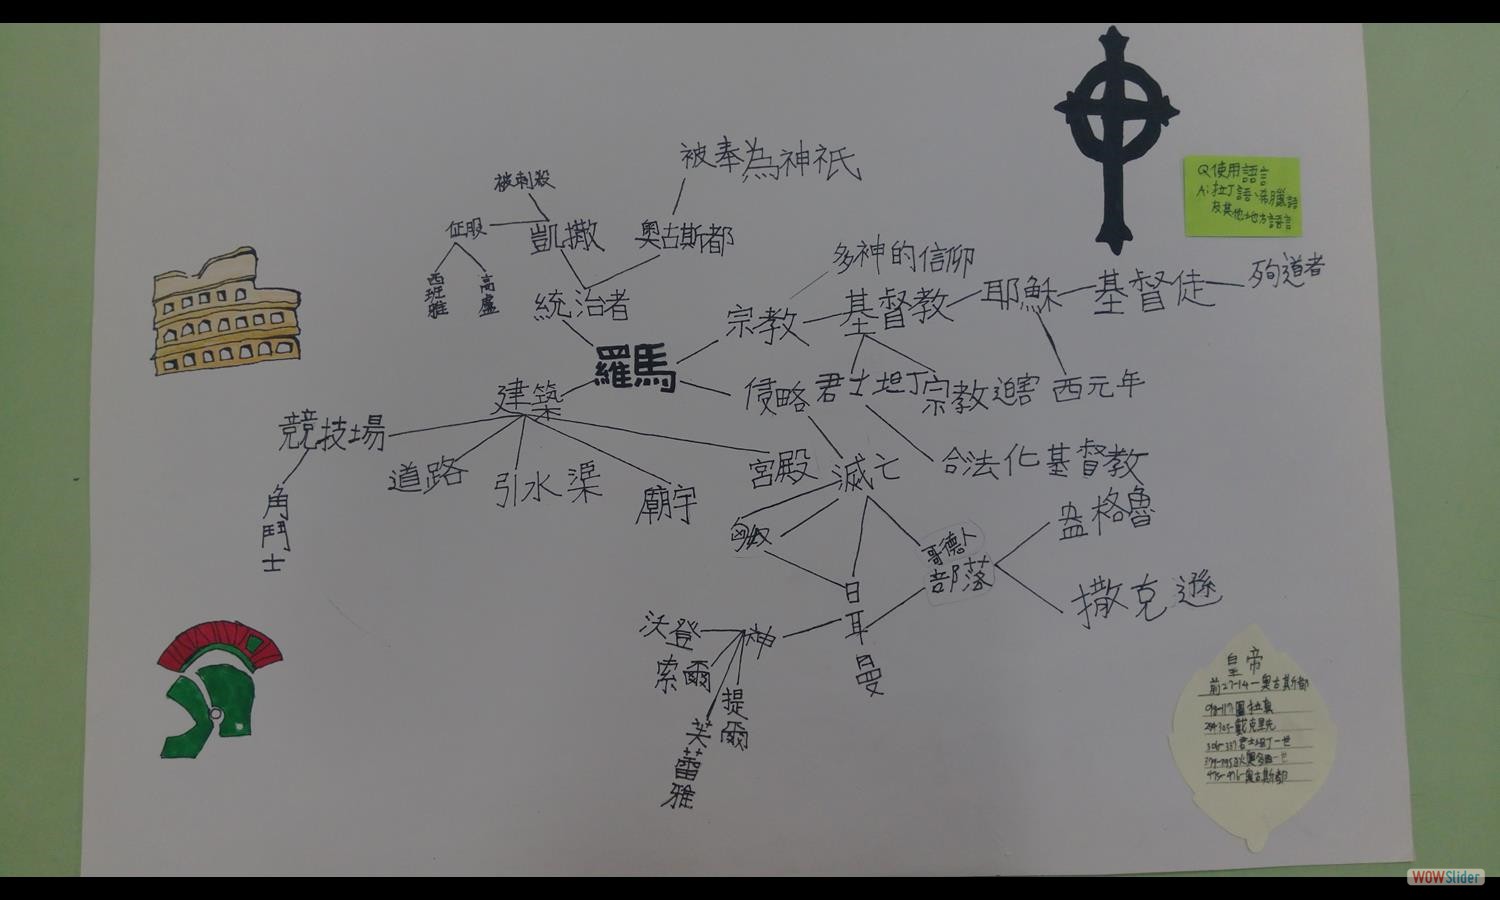 被奉為神祇
Q:使用語言
A:拉丁語、希臘語
及其他地方語言
被刺殺
征服
凱撒
奧古斯都
多神的信仰
西班雅
高盧
統治者
宗教
基督教
耶穌
基督徒
殉道者
羅馬
建築
侵略
君士坦丁
宗教迫害
西元年
競技場
道路
引水渠
廟宇
宮殿
滅亡
合法化基督教
角鬥士
匈奴
哥德卜
部落
盎格魯
撒克遜
日耳曼
神
沃登
索爾
提爾
芙蕾雅
皇帝
前27-14-奧古斯都
98-117圖拉真
284-305-戴克里先
306-337君士坦丁一世
379-395狄奧多西一世
475-476-奧古斯都
WOWSlider